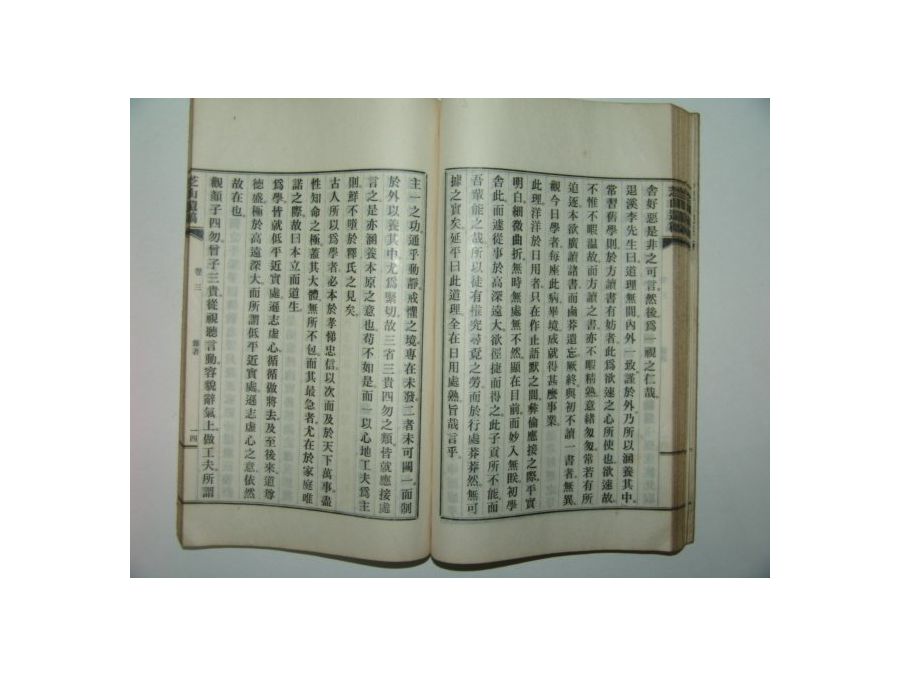 舍好惡是非之可言然後爲一視之仁哉
退溪李先生曰道理無間內外一致謹於外乃所以涵養其中
常習舊學則於方讀書有妨者此爲欲速之心所使也欲速故
不惟不暇溫故而方讀之書亦不暇精熟意緒匆匆常若有所
迫逐本欲廣讀諸書而鹵莽遺忘厥終與初不讀一書者無異
觀今日學者每座此病畢境成就得甚麽事業
此理洋洋於日用者只在作止語默之間彝倫應接之際平實
明白細微曲折無時無處不然顯在目前而妙入無眹初學
舍此而遽從事於高深遠大欲徑捷而得之此子貢所不能而
吾輩能之哉所以徒有推究尋覓之勞而於行處莽莽然無可
據之實矣延平曰此道理全在日用處熟旨哉言乎
主一之功通乎動靜戒懼之境專在未發二者未可闕一而制
於外以養其中尤爲緊切故三省三貴四勿之類皆就應接處
言之是亦涵養本原之意也苟不如是而一以心地工夫爲主
則鮮不墮於釋氏之見矣
古人所以爲學者必本於孝悌忠信以次而及於天下萬事盡
性知命之極蓋其大體無所不包而其最急者尤在於家庭唯
諾之際故曰本立而道生
爲學皆就低平近實處遜志虛心循循做將去及至後來道尊
德盛極於高遠深大而所謂低平近實處遜志虛心之意依然
故在也
觀顏子四勿曾子三貴從視聽言動容貌辭氣上做工夫所謂
芝山遺稿 卷三 雜著 一四